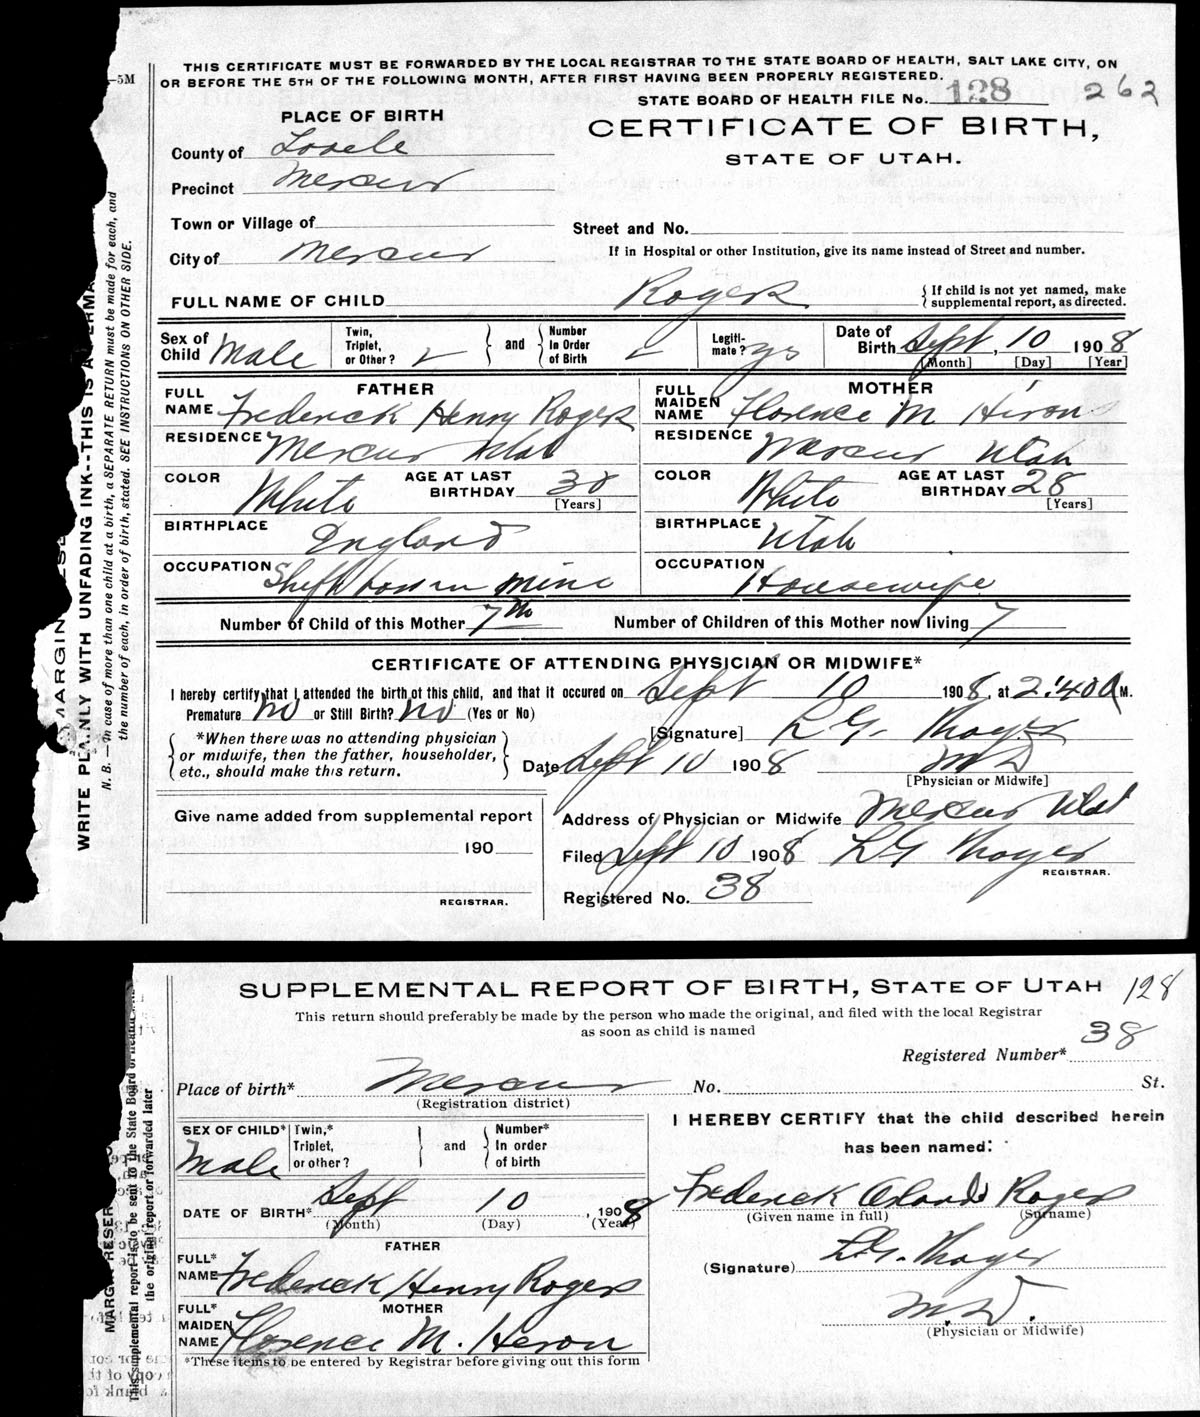 -5M
THIS CERTIFICATE MUST BE FORWARDED BY THE LOCAL REGISTRAR TO THE STATE BOARD OF HEALTH, SALT LAKE CITY, ON
OR BEFORE THE 5TH OF THE FOLLOWING MONTH, AFTER FIRST HAVING BEEN PROPERLY REGISTERED.
STATE BOARD OF HEALTH FILE No. 128 262
PLACE OF BIRTH
CERTIFICATE OF BIRTH,
STATE OF UTAH.
County of Tooele
Precinct Mercur
Town or Village of
Street and No.
City of Mercur
If in Hospital or other Institution, give its name instead of Street and number.
FULL NAME OF CHILD Rogers
{ If child is not yet named, make
supplemental report, as directed.
Sex of Child Male
Twin, Triplet, or Other? ✓ } and { Number In Order of Birth ✓
Legiti-mate? yes
Date of Birth Sept, 10 1908
[Month] [Day] [Year]
FATHER
FULL NAME Frederick Henry Rogers
RESIDENCE Mercur Utah
COLOR White AGE AT LAST BIRTHDAY 38
[Years]
BIRTHPLACE England
OCCUPATION Shift boss in mine
MOTHER
FULL MAIDEN NAME Florence M Hiron
RESIDENCE Mercur Utah
COLOR White AGE AT LAST BIRTHDAY 28
[Years]
BIRTHPLACE Utah
OCCUPATION Housewife
Number of Child of this Mother 7th Number of Children of this Mother now living 7
CERTIFICATE OF ATTENDING PHYSICIAN OR MIDWIFE*
I hereby certify that I attended the birth of this child, and that it occured on Sept 10 1908, at 2:40 a M.
Premature? No or Still Birth? No (Yes or No)
{ *When there was no attending physician
or midwife, then the father, householder,
etc., should make this return. }
[Signature] L G. Thayer
Date Sept 10 1908 M D
[Physician or Midwife]
Give name added from supplemental report
190
REGISTRAR.
Address of Physician or Midwife Mercur Utah
Filed Sept 10 1908 L G Thayer
REGISTRAR.
Registered No. 38
WRITE PLAINLY WITH UNFADING INK--THIS IS A PERMA
N. B. — In case of more than one child at a birth, a SEPARATE RETURN must be made for each, and
the number of each, in order of birth, stated. SEE INSTRUCTIONS ON OTHER SIDE.
MARGIN RESE
SUPPLEMENTAL REPORT OF BIRTH, STATE OF UTAH 128
This return should preferably be made by the person who made the original, and filed with the local Registrar
as soon as child is named
Registered Number* 38
Place of birth* Mercur No. St.
(Registration district)
SEX OF CHILD* Male
Twin,* Triplet, or other? } and { Number* In order of birth
DATE OF BIRTH* Sept 10, 1908
(Month) (Day) (Year)
FATHER
FULL* NAME Frederick Henry Rogers
MOTHER
FULL* MAIDEN NAME Florence M. Heron
*These items to be entered by Registrar before giving out this form
I HEREBY CERTIFY that the child described herein
has been named:
Frederick Orlando Rogers
(Given name in full) (Surname)
(Signature) L.G. Thayer
M.D.
(Physician or Midwife)
MARGIN RESER
This supplemental report is to be sent to the State Board of Health
the original report or forwarded later